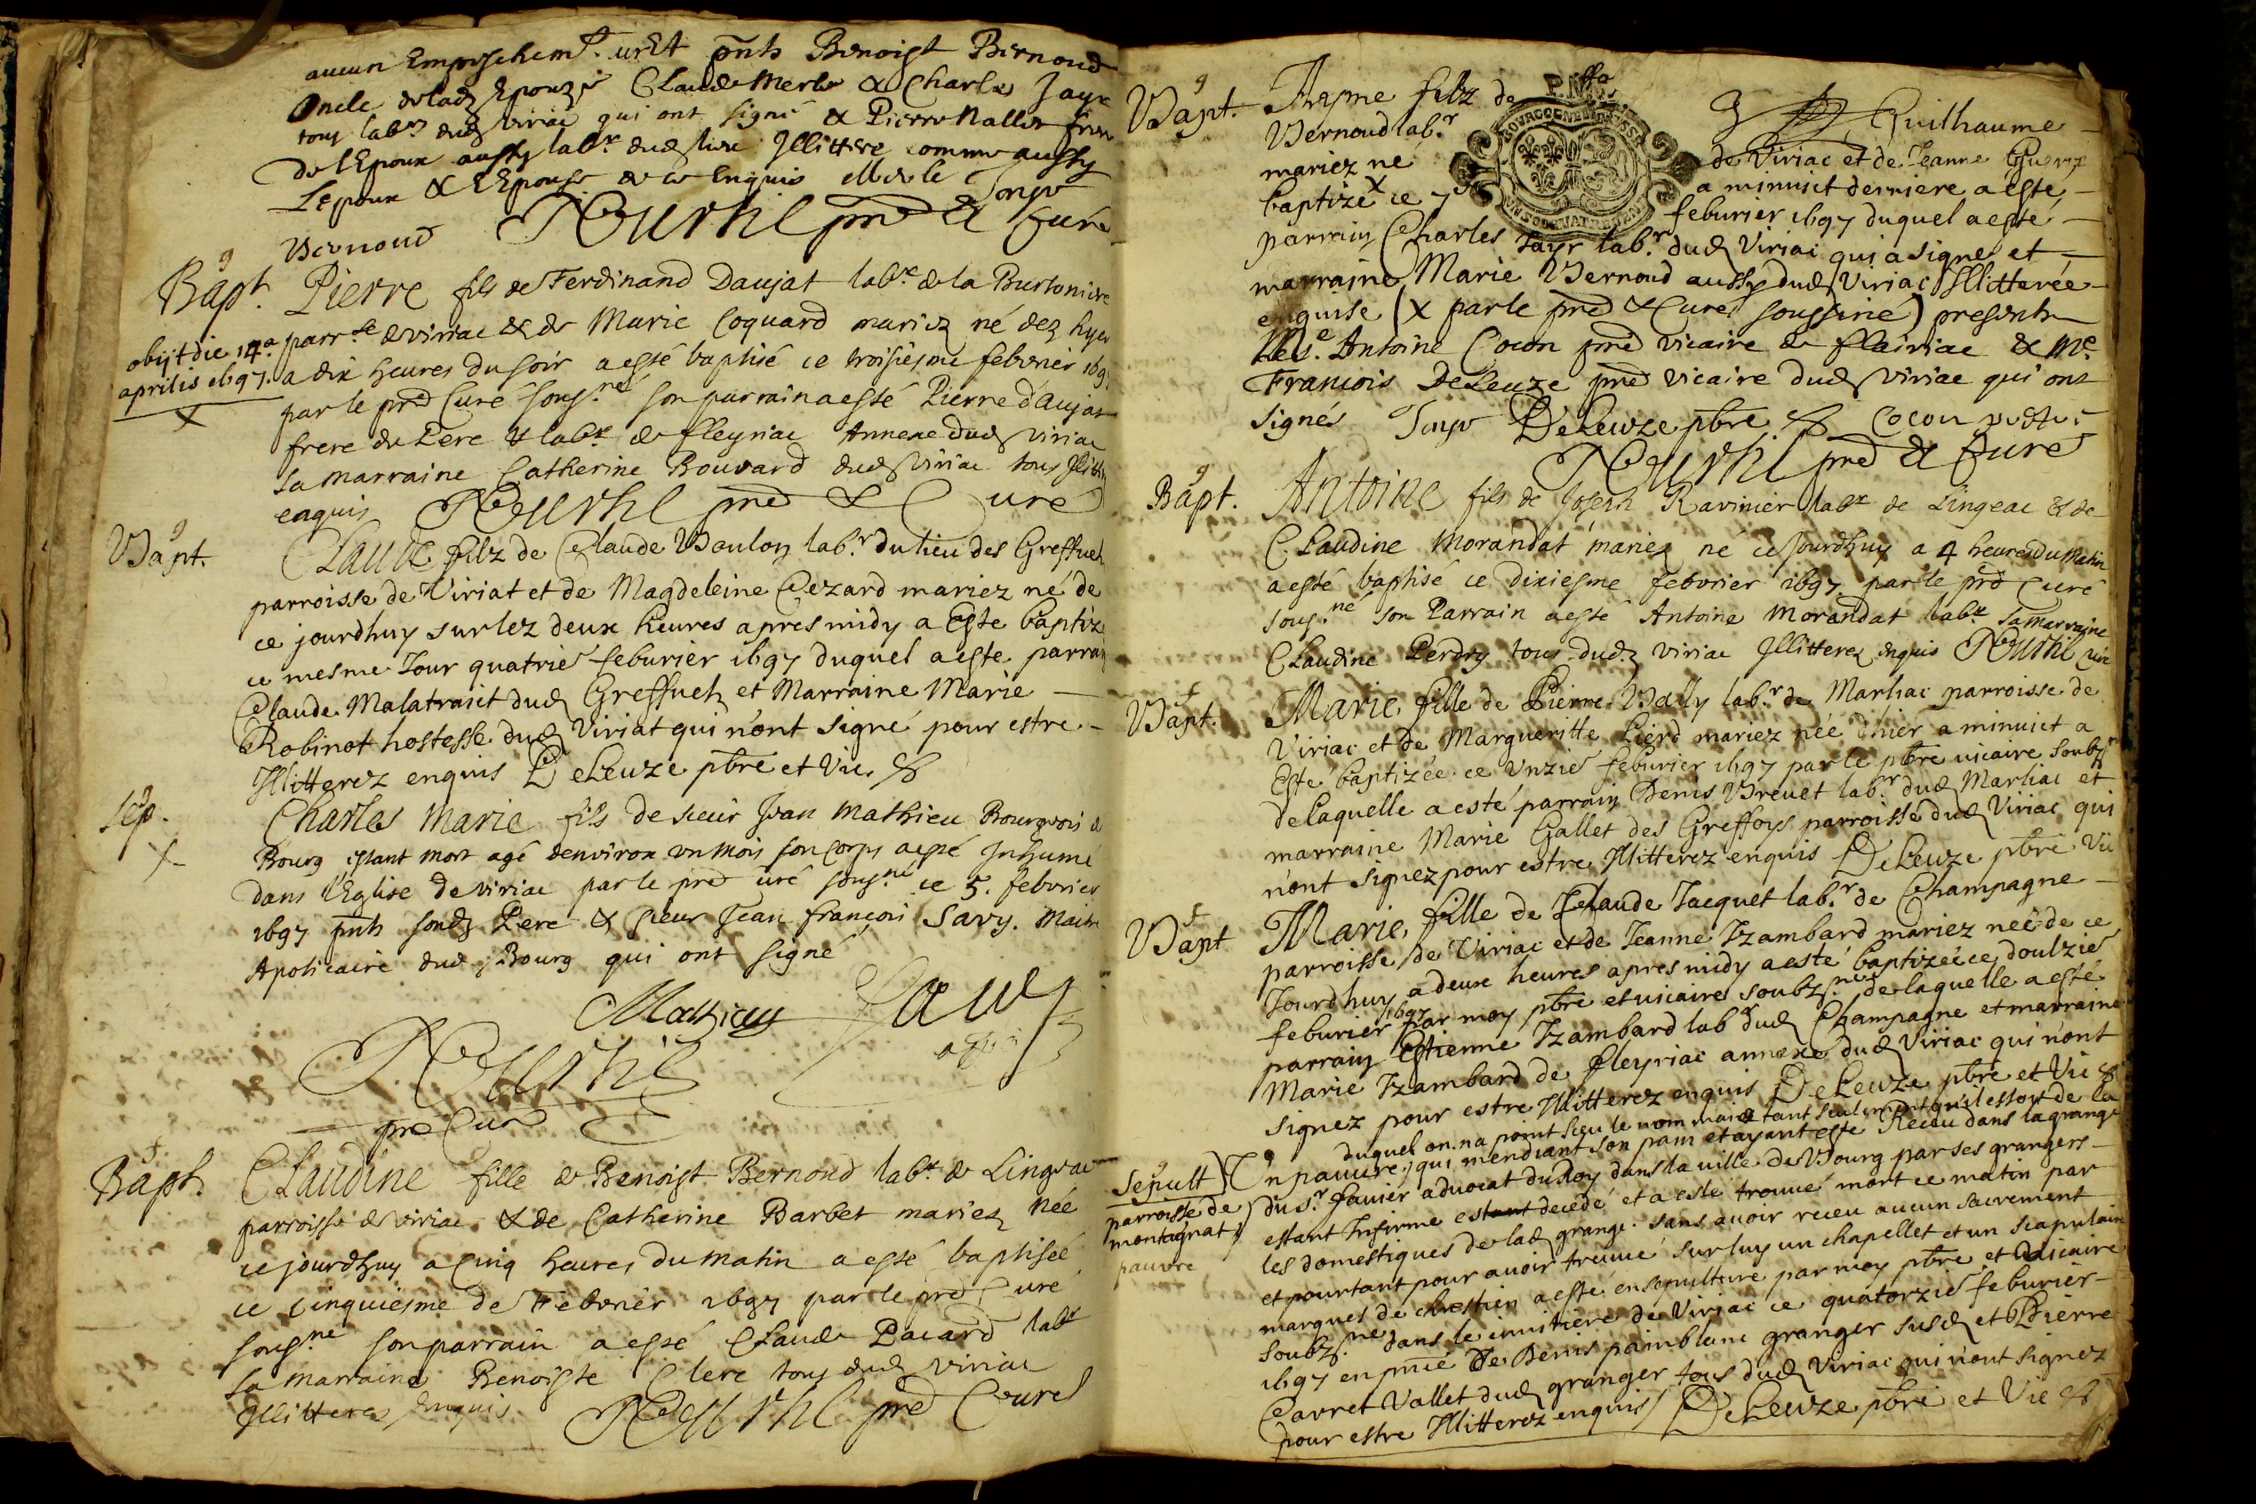 aucun Empeschem.t et pnts Benoist Bernoud
Oncle de lad Epouze Claude Merle & Charle Jayr
tous lab.rs dud Viriac qui ont signé & Pierre Nallet frere
de l'Epoux aussy lab.r dud lieu Illitteré comme aussy
L'epoux & l'Epouse de ce Enquis
Bernoud pred & Curé
g
Bapt. Pierre fils de Ferdinand Daujat lab.r de la Burtoniere
obijt die 14.a parr.se de viriac & de Marie Coquard mariez né dez hyer
aprilis 1697. a dix heures du soir a esté baptisé ce troisiesme febvrier 1697
X par le pred Curé sous.né son parrain a esté Pierre daujat
frere du Pere & lab.r de fleyriac Annexe dud viriac
sa marraine Catherine Bouvard dud viriac tous Illitt
enquis pred & Curé
g
Bapt. Claude filz de Claude Boulon lab.r du lieu des Greffuetz
parroisse de Viriat et de Magdeleine Cezard mariez né de
ce jourdhuy sur lez deux heures apres midy a Este baptizé
ce mesme Jour quatrie feburier 1697 duquel a este parrain
Claude Malatrait dud Greffuetz et Marraine Marie
Robinot hostesse dud Viriat qui n'ont signé pour estre
Illitterez enquis DeLeuze pbre et Vic.
Sep. Charles Marie fils de sieur Jean Mathieu Bourgeois de
X Bourg estant mort agé denviron un mois son corps a esté Inhumé
dans l'Eglise de viriac par le pred curé sous.né ce 5. febvrier
1697 pnts sond Pere & sieur Jean françois Savy. Maitre
Apoticaire dud Bourg qui ont signé
Mathieu Savy
pre Curé
f
Bapt. Claudine fille de Benoist Bernoud lab.r de Lingeac
parroisse de viriac & de Catherine Barbet mariez née
ce jourdhuy a Cinq heures du matin a esté baptisée
ce cinquiesme de Febvrier 1697 par le pred Curé
sous.né son parrain a esté Claude Pacard lab.r
sa marraine Benoiste Clere tous dud viriac
Illitteres Enquis pred Curé
g
Bapt. filz de Guilhaume
Bernoud lab.r de Viriac et de Jeanne
mariez né a minuict derniere a este
baptizé X ce 7e feburier 1697 duquel a esté
parrain Charles Jayr lab.r dud Viriac qui a signé et
marraine Marie Bernoud aussy dud Viriac Illitterée
enquise (X par le pred & Curé soussiné) presents
Mes.e Antoine Cocon pred vicaire de fleiriac & M.e
Francois DeLeuze pred vicaire dud viriac qui ont
signés DeLeuze pbre Cocon
pred & Curé
g
Bapt. Antoine fils de Joseph Ravinier lab.r de Lingeac & de
Claudine Morandat mariez né ce jourdhuy a 4 heures du matin
a esté baptisé ce dixiesme febvrier 1697. par le pred Curé
sous.né son Parrain a esté Antoine Morandat lab.r sa marraine
Claudine Perdry tous dud. viriac Illitterez enquis
f
Bapt. Marie fille de Pierre Vally lab.r de Marliac parroisse de
Viriac et de Margueritte Lierd mariez née d'hier a minuict a
Este baptizée ce Unzie feburier 1697 par le pbre vicaire soubz
de laquelle a esté parrain Denis Brevet lab.r dud Marliac et
marraine Marie Gallet des Greffoys parroisse dud Viriac qui
n'ont signez pour estre Illitterez enquis DeLeuze pbre Vic
f
Bapt Marie fille de Claude Jacquet lab.r de Champagne
parroisse de Viriac et de Jeanne Izambard mariez neé de ce
Jourdhuy a deux heures apres midy a esté baptizée ce doulzie
feburier 1697 par moy pbre et vicaire soubz.né de laquelle a esté
parrain Estienne Izambard lab.r dud Champagne et marraine
Marie Izambard de fleyriac annexe dud Viriac qui n'ont
signez pour estre Illitterez enquis DeLeuze pbre et Vic
duquel on na point sceu le nom mais tant seulement qu'il estoit de la
Sepult Un pauvre, qui mendiant son pain et ayant esté Receu dans la grange
parroisse de du s.r favier advocat du Roy dans la ville de Bourg par ses grangers
montagnat estant Infirme estant decedé et a esté trouvé mort ce matin par
pauvre les domestiques de lad grange. sans avoir receu aucun sacrement
et pourtant pour avoir treuvé sur luy un chapellet et un scapulaire
marques de chrestien a esté ensepulturé par moy pbre et vicaire
soubz.né dans le cimitiere de Viriac ce quatorzie feburier
1697 en pnce de Denis painblanc granger susd et Pierre
Carret Vallet dud granger tous dud Viriac qui n'ont signez
pour estre Illitterez enquis DeLeuze pbre et Vic